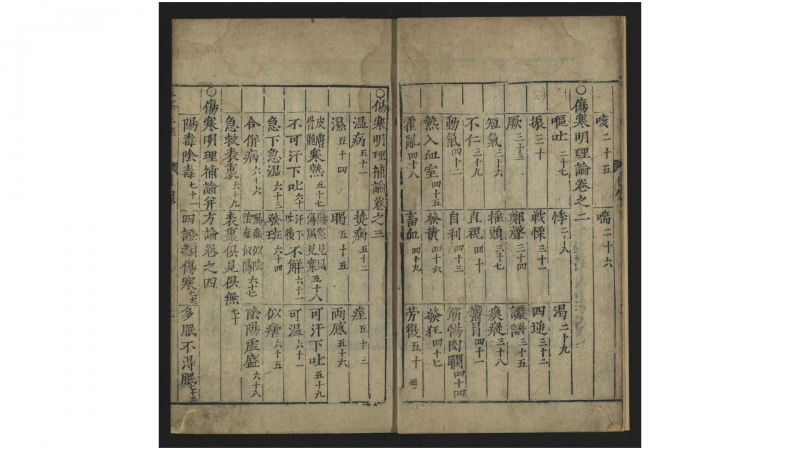 咳二十五 喘二十六
○傷寒明理論卷之二
嘔吐二十七 悸二八 渴二十九
振三十 戰慄三十一 四逆三十二
厥三十三 鄭聲三十四 讝語三十五
短氣三十六 搖頭三十七 瘈瘲三十八
不仁三十九 直視四十 鬱冒四十一
動氣四十二 自利四十三 筋惕肉瞤四十四
熱入血室四十五 發黃四十六 發狂四十七
霍亂四十八 畜血四十九 勞復五十
○傷寒明理補論卷之三
溫病五十一 痓病五十二 痓五十三
濕五十四 暍五十五 兩感五十六
皮膚骨髓寒熱五十七 傷寒見風傷風見寒五十八 可汗下吐五十九
不可汗下吐六十 汗下吐後不解六十一 可溫六十一
急下急溫六十三 發斑六十四 似瘧六十五
合併病六十六 陽症似陰陰症似陽六十七 陰陽虛盛六十八
急救表裏六十九 表裏俱見俱無七十
○傷寒明理補論并方論卷之四
陽毒陰毒七十一 四證類傷寒七十二 多眠不得眠七十三